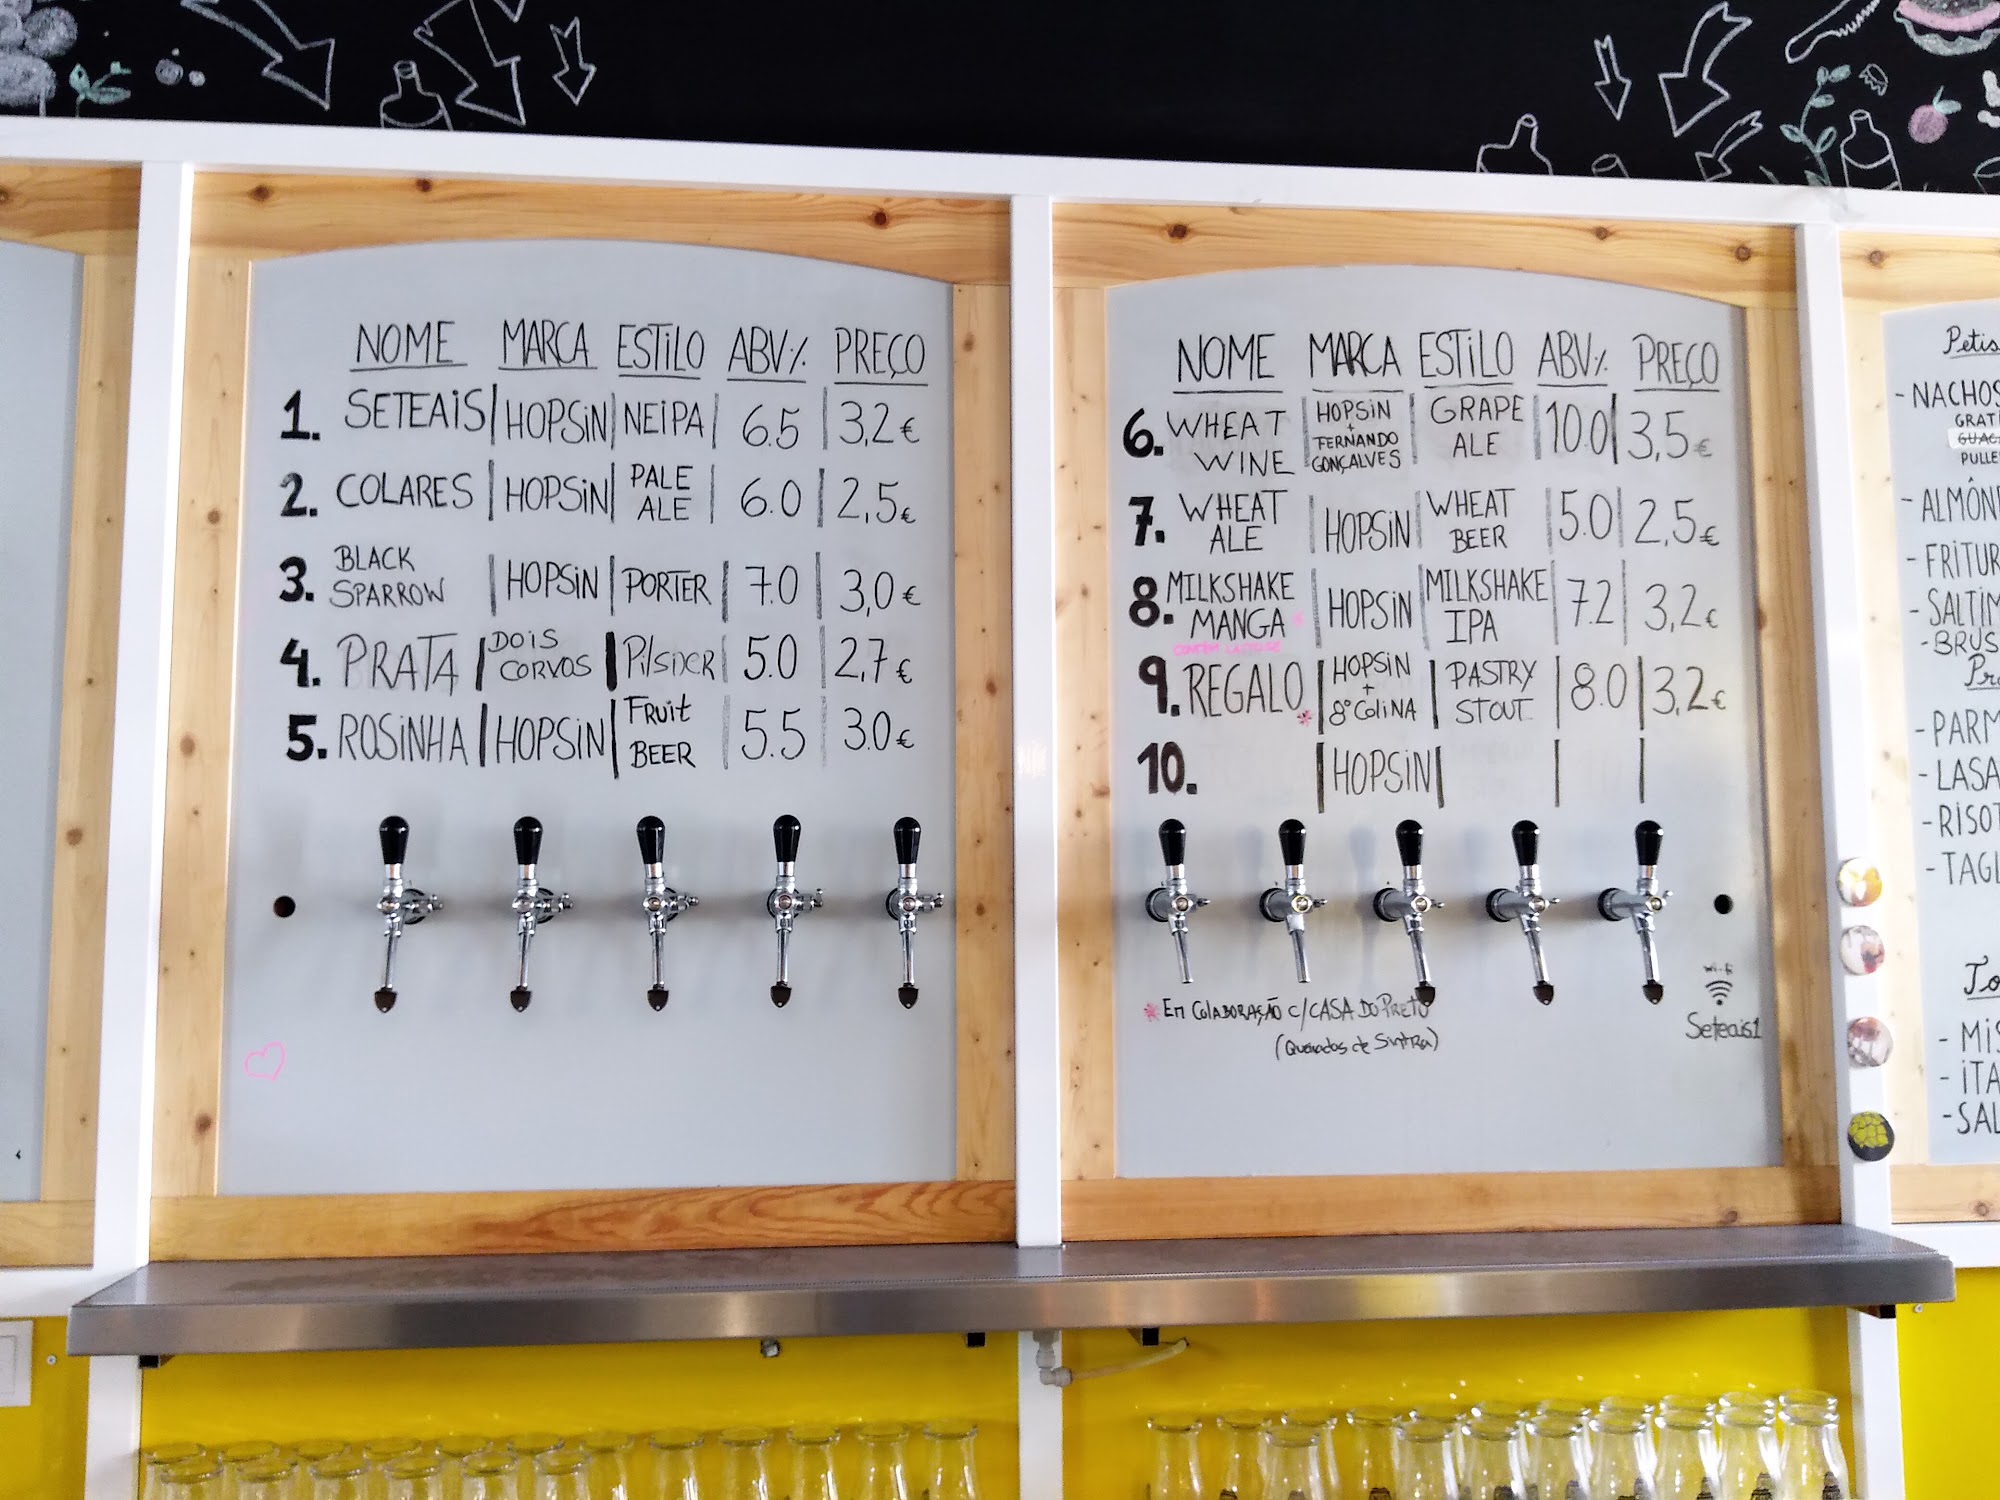 NOME MARCA ESTILO ABV% PREÇO
1. SETEAIS | HOPSIN | NEIPA | 6.5 | 3,2€
2. COLARES | HOPSIN | PALE ALE | 6.0 | 2,5€
3. BLACK SPARROW | HOPSIN | PORTER | 7.0 | 3,0€
4. PRATA | DOIS CORVOS | PiLSNER | 5.0 | 2,7€
5. ROSINHA | HOPSIN | FRUIT BEER | 5.5 | 3.0€
NOME MARCA ESTILO ABV% PREÇO
6. WHEAT WINE | HOPSIN + FERNANDO GONÇALVES | GRAPE ALE | 10.0 | 3,5€
7. WHEAT ALE | HOPSIN | WHEAT BEER | 5.0 | 2,5€
8. MILKSHAKE MANGA * | HOPSIN | MILKSHAKE IPA | 7.2 | 3,2€
CONTÉM LACTOSE
9. REGALO * | HOPSIN + 8ª COLINA | PASTRY STOUT | 8.0 | 3,2€
10. | HOPSIN | | |
* EM COLABORAÇÃO C/CASA DO PRETO
(QUEIJADAS DE SINTRA)
Wi-fi
Seteais1
- NACHOS
- LASA
- RISOT
- TAGL
- MIS
- ITA
- SAL